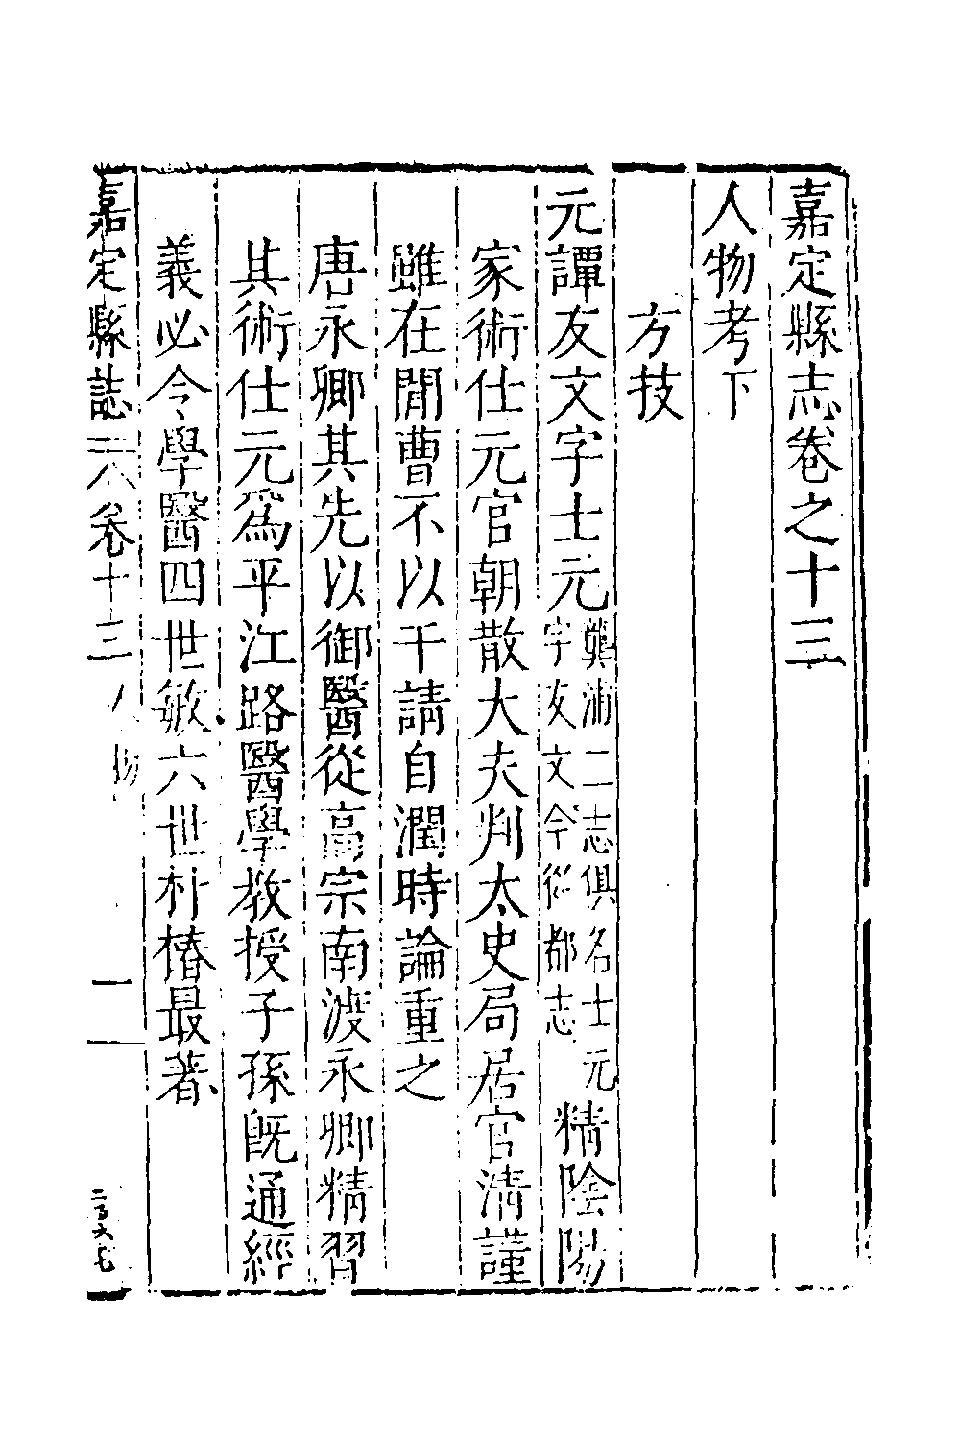 嘉定縣志卷之十三
人物考下
方技
元譚友文字士元龔浦二志俱名士元字友文今從都志精陰陽
家術仕元官朝散大夫判太史局居官清謹
雖在閒曹不以干請自潤時論重之
唐永卿其先以御醫從高宗南渡永卿精習
其術仕元爲平江路醫學教授子孫旣通經
義必令學醫四世敏六世朴椿最著
嘉定縣誌 卷十三 人物 一 二百六七